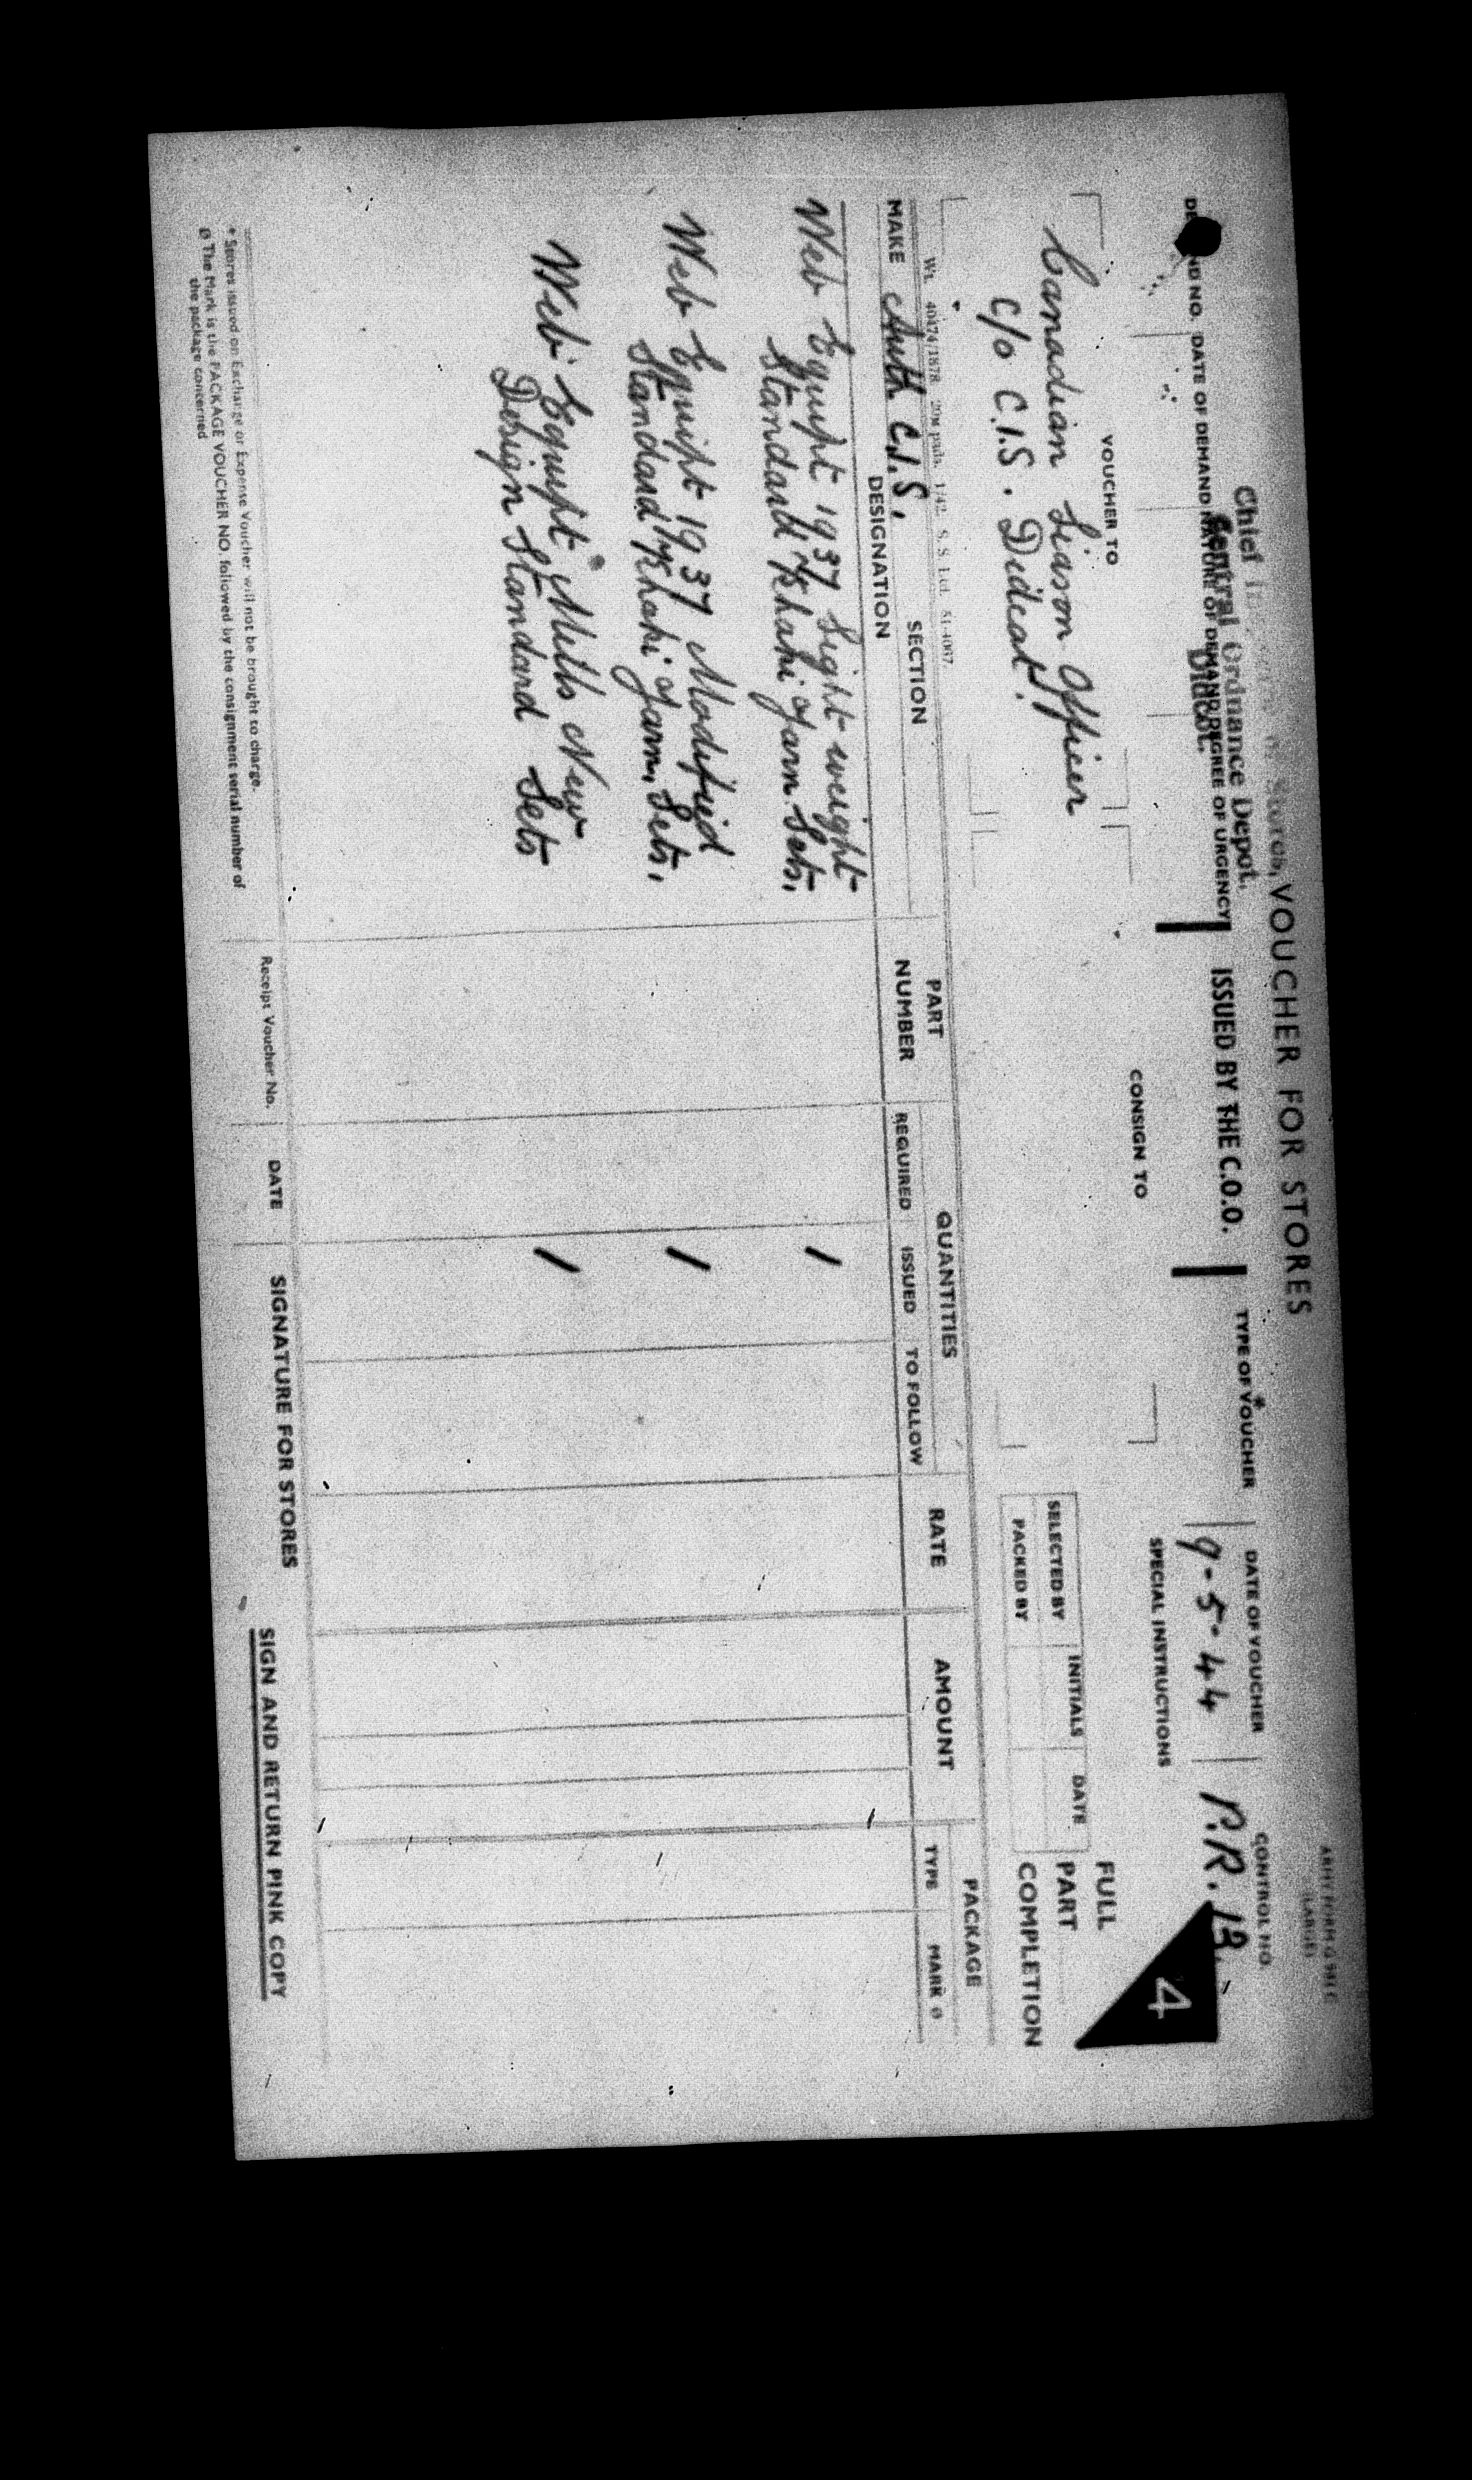 VOUCHER FOR STORES
Chief Stores,
Central Ordnance Depot,
Didcot.
ISSUED BY THE C.O.O.
TYPE OF VOUCHER *
DATE OF VOUCHER
CONTROL NO.
ND NO. DATE OF DEMAND NATURE OF DEMAND DEGREE OF URGENCY
9-5-44
P.R. 13.
4
VOUCHER TO
CONSIGN TO
SPECIAL INSTRUCTIONS
Canadian Liason Officer
C/O C.I.S. Didcot.
INITIALS DATE
SELECTED BY
PACKED BY
FULL
PART
COMPLETION
Wt. 4047A/1878 20M pads. 1/42 S. S. Ltd. 51-4007
MAKE Auth C.I.S. SECTION
DESIGNATION
PART
NUMBER
QUANTITIES
REQUIRED ISSUED TO FOLLOW
RATE
AMOUNT
PACKAGE
TYPE MARK ø
Web Equipt 1937 Light weight
Standard Khaki Yarn Sets. 1
Web Equipt 1937 Modified
Standard Khaki Yarn, Sets. 1
Web Equipt Mills New
Design Standard Sets 1
* Stores issued on Exchange or Expense Voucher will not be brought to charge.
ø The Mark is the PACKAGE VOUCHER NO. followed by the consignment serial number of
the package concerned
Receipt Voucher No.
DATE
SIGNATURE FOR STORES
SIGN AND RETURN PINK COPY